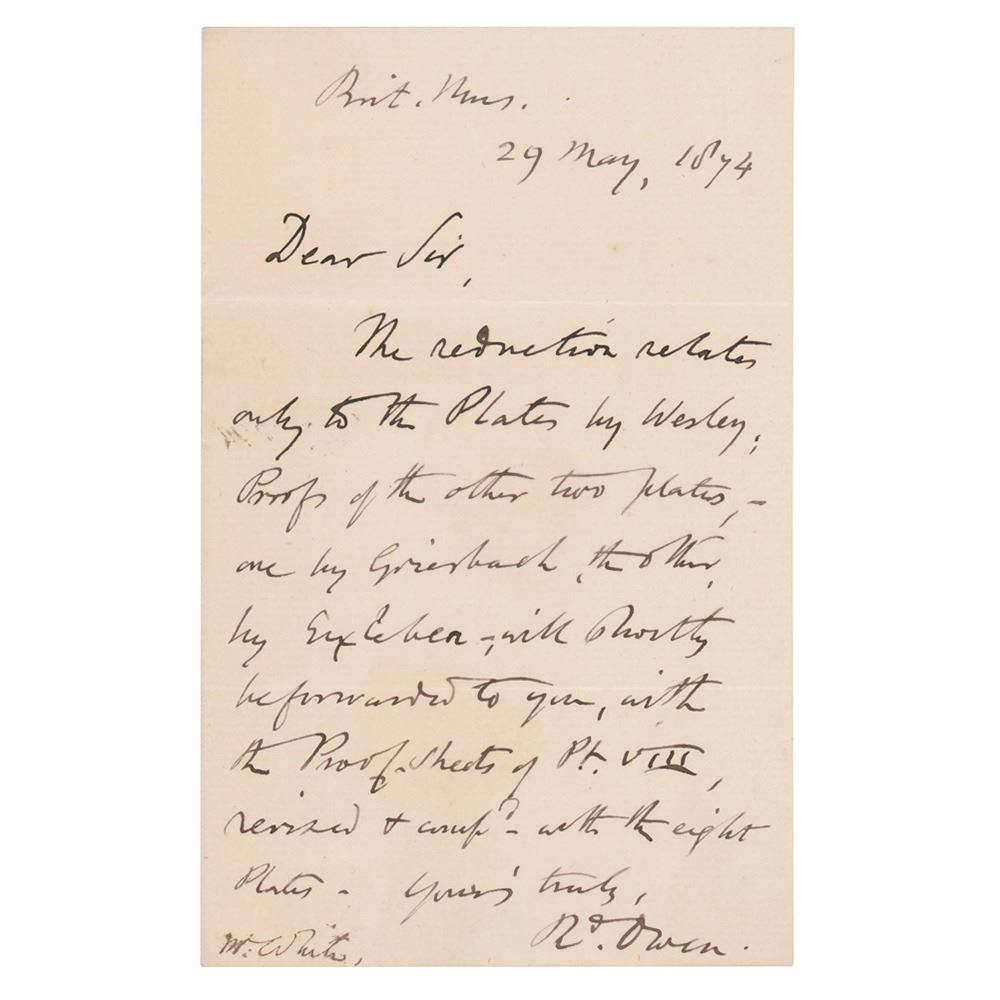 Brit. Mus.
29 May, 1874
Dear Sir,
The reduction relates
only to the Plates by Wesley;
Proofs of the other two plates, -
one by Griesbach, the other,
by Erxleben - will shortly
be forwarded to you, with
the Proof-sheets of Pt. VIII,
revised & comp^d - with the eight
Plates - Your's truly,
R^d. Owen.
Mr. White,